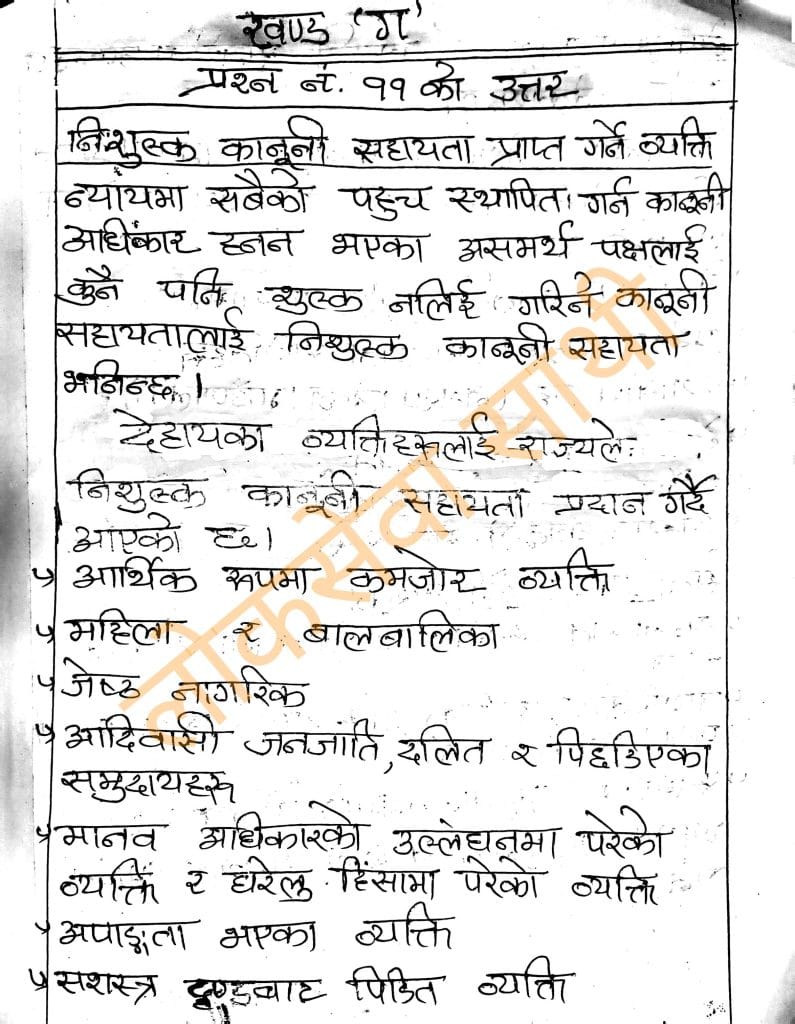 खण्ड 'ग'
प्रश्न नं. ११ को उत्तर
निःशुल्क कानूनी सहायता प्राप्त गर्ने व्यक्ति
न्यायमा सबैको पहुच स्थापित। गर्न कानूनी
अधिकार हनन भएका असमर्थ पक्षलाई
कुनै पनि शुल्क नलिई गरिने कानूनी
सहायतालाई निशुल्क कानूनी सहायता
भनिन्छ।
देहायका व्यक्तिहरूलाई राज्यले
निशुल्क कानूनी सहायता प्रदान गर्दै
आएको छ।
आर्थिक रूपमा कमजोर व्यक्ति
महिला र बालबालिका
जेष्ठ नागरिक
आदिवासी जनजाति, दलित र पिछडिएका
समुदायहरू
मानव अधिकारको उल्लंघनमा परेको
व्यक्ति र घरेलु हिंसामा परेको व्यक्ति
अपाङ्गता भएका व्यक्ति
सशस्त्र द्वण्डबाट पिडित व्यक्ति
लोकसेवा साथी